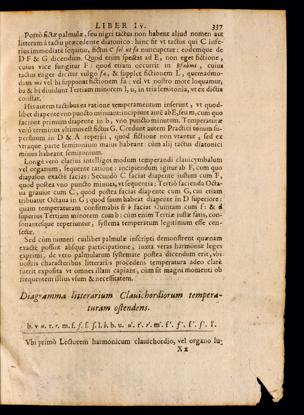 LIBER IV. 337
Porrò fictæ palmulæ, seu nigri tactus non habent aliud nomen aut
litteram à tactu præcedente diatonico: hinc fit vt tactus qui C infe-
rius immediatè sequitur, fictus C sol ut fa nuncupetur: eodemque de
D F & G dicendum. Quod enim spectat ad E, non eget fictione,
cuius vice fungitur F: quod etiam occurrit in
tactus niger dicitur vulgò fa, & supplet fictionem L, quemadmo-
dum mi vel bi supponat fictionem fa: vel vt nostro more loquamur,
ba & bi diuidunt Tertiam minorem l, u, in tria semitonia, vt ex dictis
constat.
His autem tactibus ea ratione temperamentum inserunt, vt quod-
libet diapente vno puncto minuant: incipiunt autē
faciunt primum diapente in b, vno puncto minutum. Temperaturæ
verò terminus vltimus est fictus G. Credunt autem Practici tenum su-
perfluum in D & A reperiri, quod fictione non vtantur, sed ex
vtraque parte semitonium maius habeant: cùm alij tactus diatonici
minus habeant semitonium.
Longè verò clariùs intelliges modum temperandi clauicymbalum
vel organum, sequente ratione: incipiendum igitur ab F, cum quo
diapason exactè faciat: Secundò C faciat diapente iustum cum F,
quod postea vno puncto minuas, vt sequentia: Tertiò facienda Octa-
ua grauior cum C, quod postea faciat diapente cum G, cui etiam
tribuatur Octaua in G; quod suum habeat diapente in D superiore:
quam temperaturam confirmabis si b faciat Quintam cum F: & d
superius Tertiam minorem cum b: cùm enim Tertiæ iustæ satis, con-
sonantesque reperiuntur, systema temperatum legitimum esse cen-
setur.
Sed cùm numeri cuilibet palmulæ inscripti demonstrent quænam
exactè possint absque participatione, iuxta veras harmoniæ leges
exprimi, de vero palmularum systemate postea dicendum erit, vbi
postris characteribus litterariis procedens temperatura adeo clarè
fuerit exposita vt omnes illam capiant, cùm sit magni momenti ob
frequentem illius vsum & necessitatem.
Diagramma litterarium Clauichordiorum tempera-
turam ostendens.
Vbi primò Lectorem harmonicum clauichordio, vel organo lu-
Xx